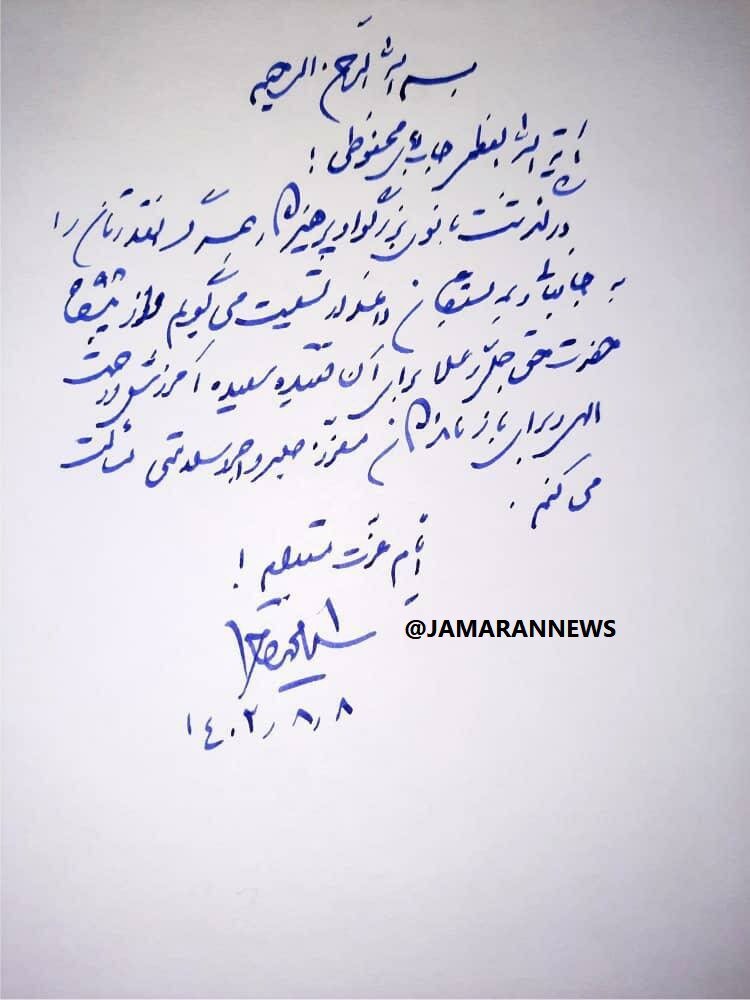 بسم الله الرحمن الرحیم
آیة الله العظمی جناب آقای محفوظی!
درگذشت بانوی بزرگوار و پرهیزگار، همسر گرانقدرتان را
به جنابعالی و به بستگان داغدار تسلیت می گویم و از پیشگاه
حضرت حق جل و علا برای آن فقیده سعیده آمرزش و رحمت
الهی و برای بازماندگان معزز، صبر و اجر و سلامتی مسألت
می کنم.
ایام عزت مستدام!
@JAMARANNEWS
۱۴۰۲٫۸٫۸